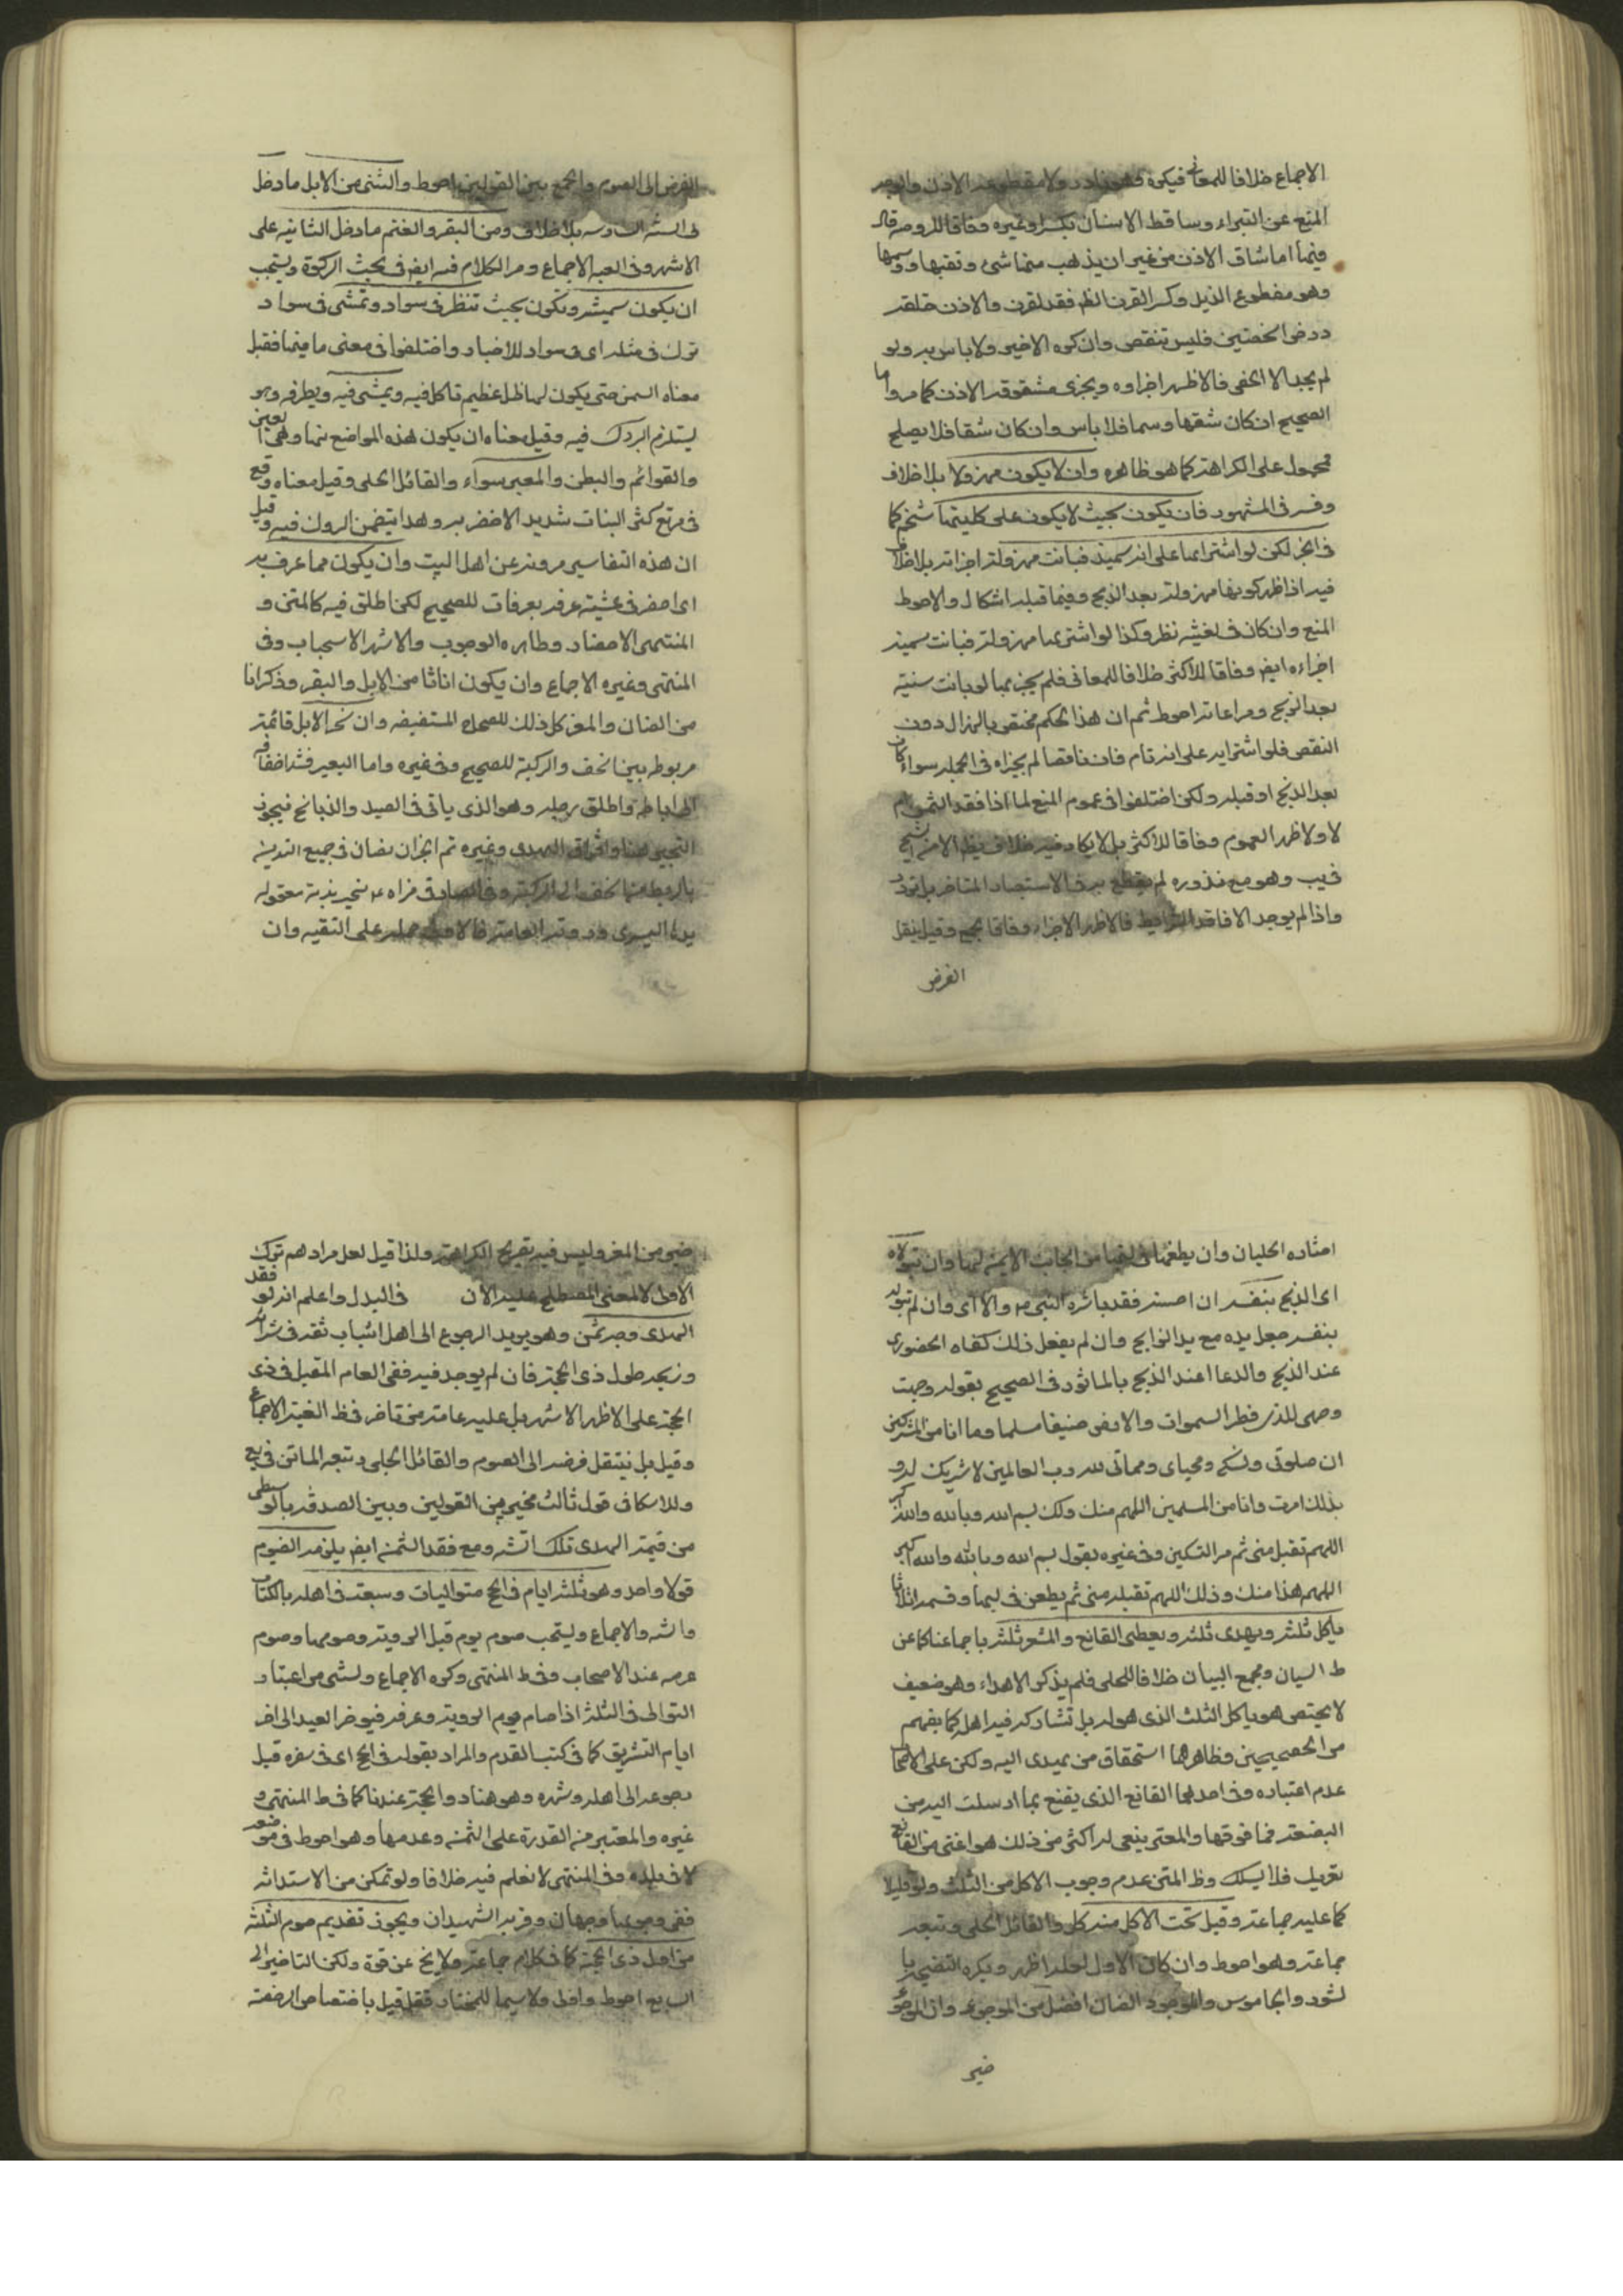 الاجماع خلافا للمعاني فيكره ولا مقطوعة الاذن
المنع عن البتراء وساقط الاسنان بكبر او غيره وفاقا للدروس قال
فيها اما شاق الاذن من غير ان يذهب منها شئ وثقبها ووسمها
وهو مقطوع الذيل وكسر القرن الظ فقد القرن والاذن خلقة
ورض الخصيتين فليس بنقص وان كره الاخير ولا باس به ولو
لم يجد الا الخصى فالاظهر اجزاؤه ويجزى مشقوقة الاذن كما مر واما
الصحيح ان كان شقها وسما فلا باس وان كان شقا فلا يصلح
محمول على الكراهة كما هو ظاهره وان لا يكون مهزولا بلا خلاف
وفسر في المشهور فان يكون بحيث لا يكون على كليتها شحم كما
في الخبر لكن لو اشتراها على انه سمينة فبانت مهزولة اجزاته بلا خلاف
فيه اذا ظهر كونها مهزولة بعد الذبح وفيما قبله اشكال والاحوط
المنع وان كان في تعينه نظر وكذا لو اشتريها مهزولة فبانت سمينة
اجزاءه ايض وفاقا للاكثر خلافا للعماني فلم يجز بها لو بانت سمينة
بعد الذبح ومراعاته احوط ثم ان هذا الحكم مختص بالهزال دون
النقص فلو اشترايه على انه تام فبان ناقصا لم يجزاه في الجملة سواء كان
بعد الذبح او قبله ولكن اختلفوا في عموم المنع لما اذا فقد الثمن ام
لا ولا ظهر العموم وفاقا للاكثر بل لا يكاد فيه خلاف يظهر الا من الشيخ
في يب وهو مع ندوره لم يقطع به في الاستبصار المتاخر بل تردد
واذا لم يوجد الا فاقد الشرايط فالاظهر الاجزاء وفاقا لجمع وقيل ينقل
الفرض
الفرض الى الصوم والجمع بين القولين احوط والثنى من الابل ما دخل
في السنة السادسة بلا خلاف ومن البقر والغنم ما دخل الثانية على
الاشهر وفي العبد الاجماع ومر الكلام فيه ايض في بحث الزكوة ويستحب
ان يكون سمينة وتكون بحيث تنظر في سواد وتمشى في سواد
تبرك في مثله اى في سواد للاخبار واختلفوا في معنى ما فيها فقيل
معناه السمن حتى يكون لها ظل عظيم تاكل فيه ويمشى فيه وينظر فيه وهو
يستلزم البروك فيه وقيل معناه ان يكون هذه المواضع منها وهى العين
والقوائم والبطن والمعبر سواء والقائل الحلى وقيل معناه وقع
في مرتع كثير النبات شديد الاخضر به وهذا يتضمن البروك فيه وقيل
ان هذه التفاسير مروية عن اهل البيت وان يكون مما عرف به
اى احضر في عشية عرفة بعرفات للصحيح لكن اطلق فيه كالمتن و
المنتهى الاحضار وظاهره الوجوب والاشهر الاستحباب وفي
المنتهى وغيره الاجماع وان يكون اناثا من الابل والبقر وذكرانا
من الضان والمعز كل ذلك للصحاح المستفيضة وان نحر الابل قائمة
مربوطة بين الخف والركبة للصحيح وفي غيره واما البعير فشد اخفافه
الى اباطه واطلق رجليه وهو الذى ياتي في الصيد والذبايح فيجوز
التخيير هنا وافراق الهدى وغيره ثم الخبران نصان في جميع اليدين
بالربط منها الخف الى الركبة وفي الصادق فراه ع ينحر بدنة معقولة
يدها اليسرى وردوته العامة فالاولى حمله على التقية وان
امتاره الحلبيان وان يطعنها في لبتها من الجانب الايمن لها وان يتولاه
اى الذبح بنفسه ان احسنه فقد باشره النبي ص والا اى وان لم يتوله
بنفسه جعل يده مع يد الذابح وان لم يفعل ذلك كفاه الحضور
عند الذبح والدعاء عند الذبح بالماثور في الصحيح بقوله وجهت
وجهى للذى فطر السموات والارض حنيفا مسلما وما انا من المشركين
ان صلوتى ونسكى ومحياى ومماتى لله رب العالمين لا شريك له و
بذلك امرت وانا من المسلمين اللهم منك ولك بسم الله وبالله والله اكبر
اللهم تقبل منى ثم مر السكين وفي غيره يقول بسم الله وبالله والله اكبر
اللهم هذا منك ولك اللهم تقبله منى ثم يطعن في لبتها وقسمه اثلاثا
ياكل ثلثه ويهدى ثلثه ويعطى القانع والمعتر ثلثه باجماعنا كما عن
ظ التبيان ومجمع البيان خلافا للحلى فلم يذكر الاهداء وهو ضعيف
لا يختص هو ياكل الثلث الذى هو له بل تشاركه فيه اهله كما يفهم
من الصحيحين وظاهرهما استحقاق من يهدى اليه ولكن على الاصحاب
عدم اعتباره وفي احدهما القانع الذى يقنع بما ارسلت اليه من
البضعة فما فوقها والمعتر ينبغى له اكثر من ذلك هو اغنى من القانع
يعتريك فلا يسئلك وظ المتن عدم وجوب الاكل من الثلث ولو قليلا
كما عليه جماعة وقيل يجب الاكل منه كل والقائل الحلى وتبعه
جماعة وهو احوط وان كان الاول لعله اظهر ويكره التضحية با
لثور والجاموس والموجود الضان افضل من الموجوء وان الموجوء
خير
خير من المعز وليس فيه تصريح الكراهة ولذا قيل لعل مرادهم ترك
الاولى لا المعنى المصطلح عليه الان في البدل واعلم انه لو فقد
الهدى وجد ثمنه وهو يريد الرجوع الى اهله استناب ثقة في شرائه
وذبحه طول ذى الحجة فان لم يوجد فيه ففى العام المقبل في ذى
الحجة على الاظهر الاشهر بل عليه عامة من تاخر وفي ظ الغنية الاجماع
وقيل بل ينتقل فرضه الى الصوم والقائل الحلى وتبعه الماتن في يع
وللاسكافى قول ثالث مخير بين القولين وبين الصدقة بالوسطى
من قيمة الهدى تلك السنة ومع فقد الثمن ايض يلزمه الصوم
قولا واحدا وهو ثلثة ايام في الحج متواليات وسبعة في اهله بالكتاب
والسنة والاجماع ويستحب صوم يوم قبل التروية وصومها وصوم
عرفة عند الاصحاب وفي ظ المنتهى وكره الاجماع ويستثنى من اعتبار
التوالى في الثلثة اذا صام يوم التروية وعرفة فيوخر العيد الى اخر
ايام التشريق كما في كتب القدم والمراد بقوله في الحج اى في سفره قبل
رجوعه الى اهله وشهره وهو هنا ذو الحجة عندنا كما في ظ المنتهى و
غيره والمعتبر من القدرة على الثمن وعدمها وهو احوط في موضعه
لا في بلده وفي المنتهى لا نعلم فيه خلافا ولو تمكن من الاستدانة
ففى وجوبها وجهان وقربه الشهيدان ويجوز تقديم صوم الثلثة
من اول ذى الحجة كما في كلام جماعة ولا يخ عن قوة ولكن التاخير الى
السابع احوط واولى ولا سيما للمختار فقد قيل باختصاص الرخصة